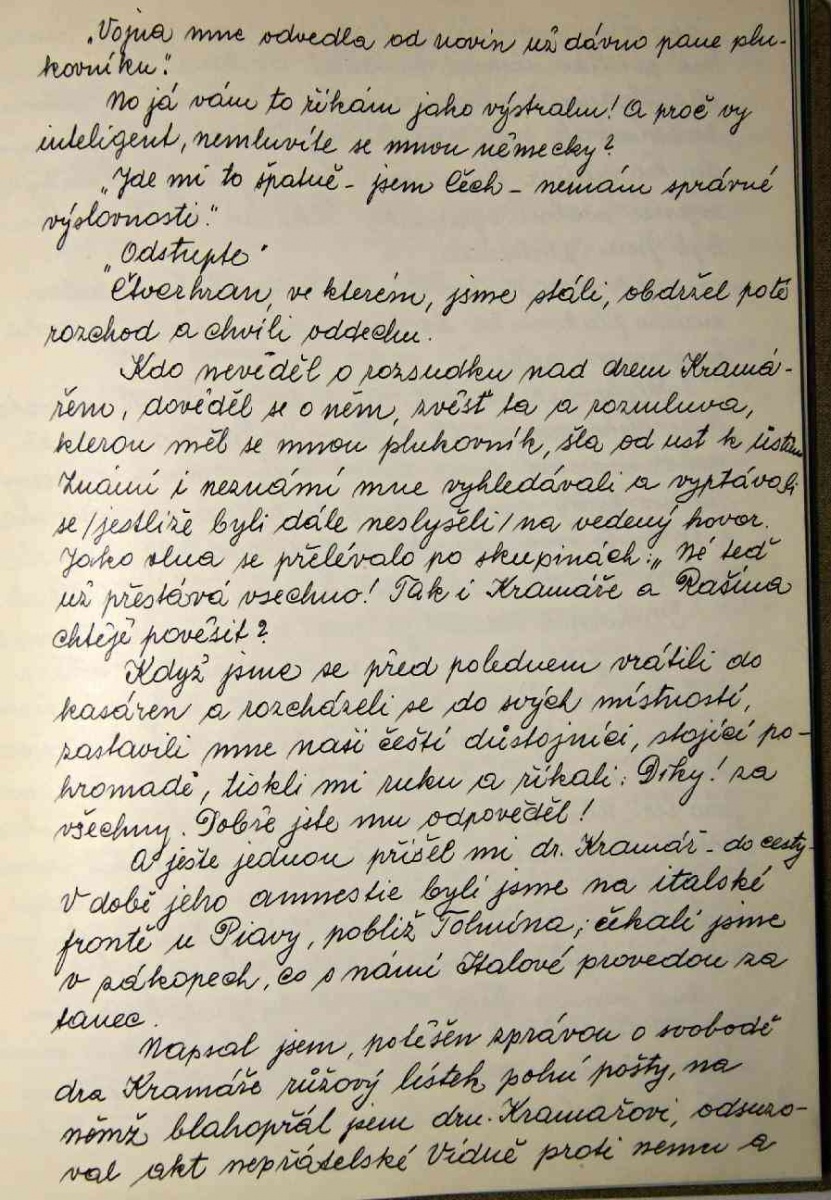 „Vojna mne odvedla od novin už dávno pane plu-
kovníku."
No já vám to říkám jako výstrahu! A proč vy
inteligent, nemluvíte se mnou německy?
„Jde mi to špatně - jsem Čech - nemám správné
výslovnosti."
„Odstupte"
Čtverhran, ve kterém, jsme stáli, obdržel poté
rozchod a chvíli oddechu.
Kdo nevěděl o rozsudku nad drem Kramá-
řem, dověděl se o něm, zvěst ta a rozmluva,
kterou měl se mnou plukovník, šla od ust k ústům
Známí i neznámí mne vyhledávali a vyptávali
se /jestliže byli dále neslyšeli/ na vedený hovor.
Jako vlna se přelévalo po skupinách: „Né teď
už přestává vsechno! Tak i Kramáře a Rašína
chtějě pověsit?
Když jsme se před polednem vrátili do
kasáren a rozcházeli se do svých místností,
zastavili mne naši čeští důstojníci, stojící po-
hromadě, tiskli mi ruku a říkali: Díky! za
všechny. Dobře jste mu odpověděl!
A ještě jednou přišel mi dr. Kramář - do cesty.
V době jeho amnestie byli jsme na italské
frontě u Piavy, poblíž Tolmína; čekali jsme
v zákopech, co s námi Italové provedou za
tanec.
Napsal jsem, potěšen zprávou o svobodě
dra Kramáře růžový lístek polní pošty, na
němž blahopřál jsem dru. Kramařovi, odsuzo-
val akt nepřátelské Vídně proti nemu a